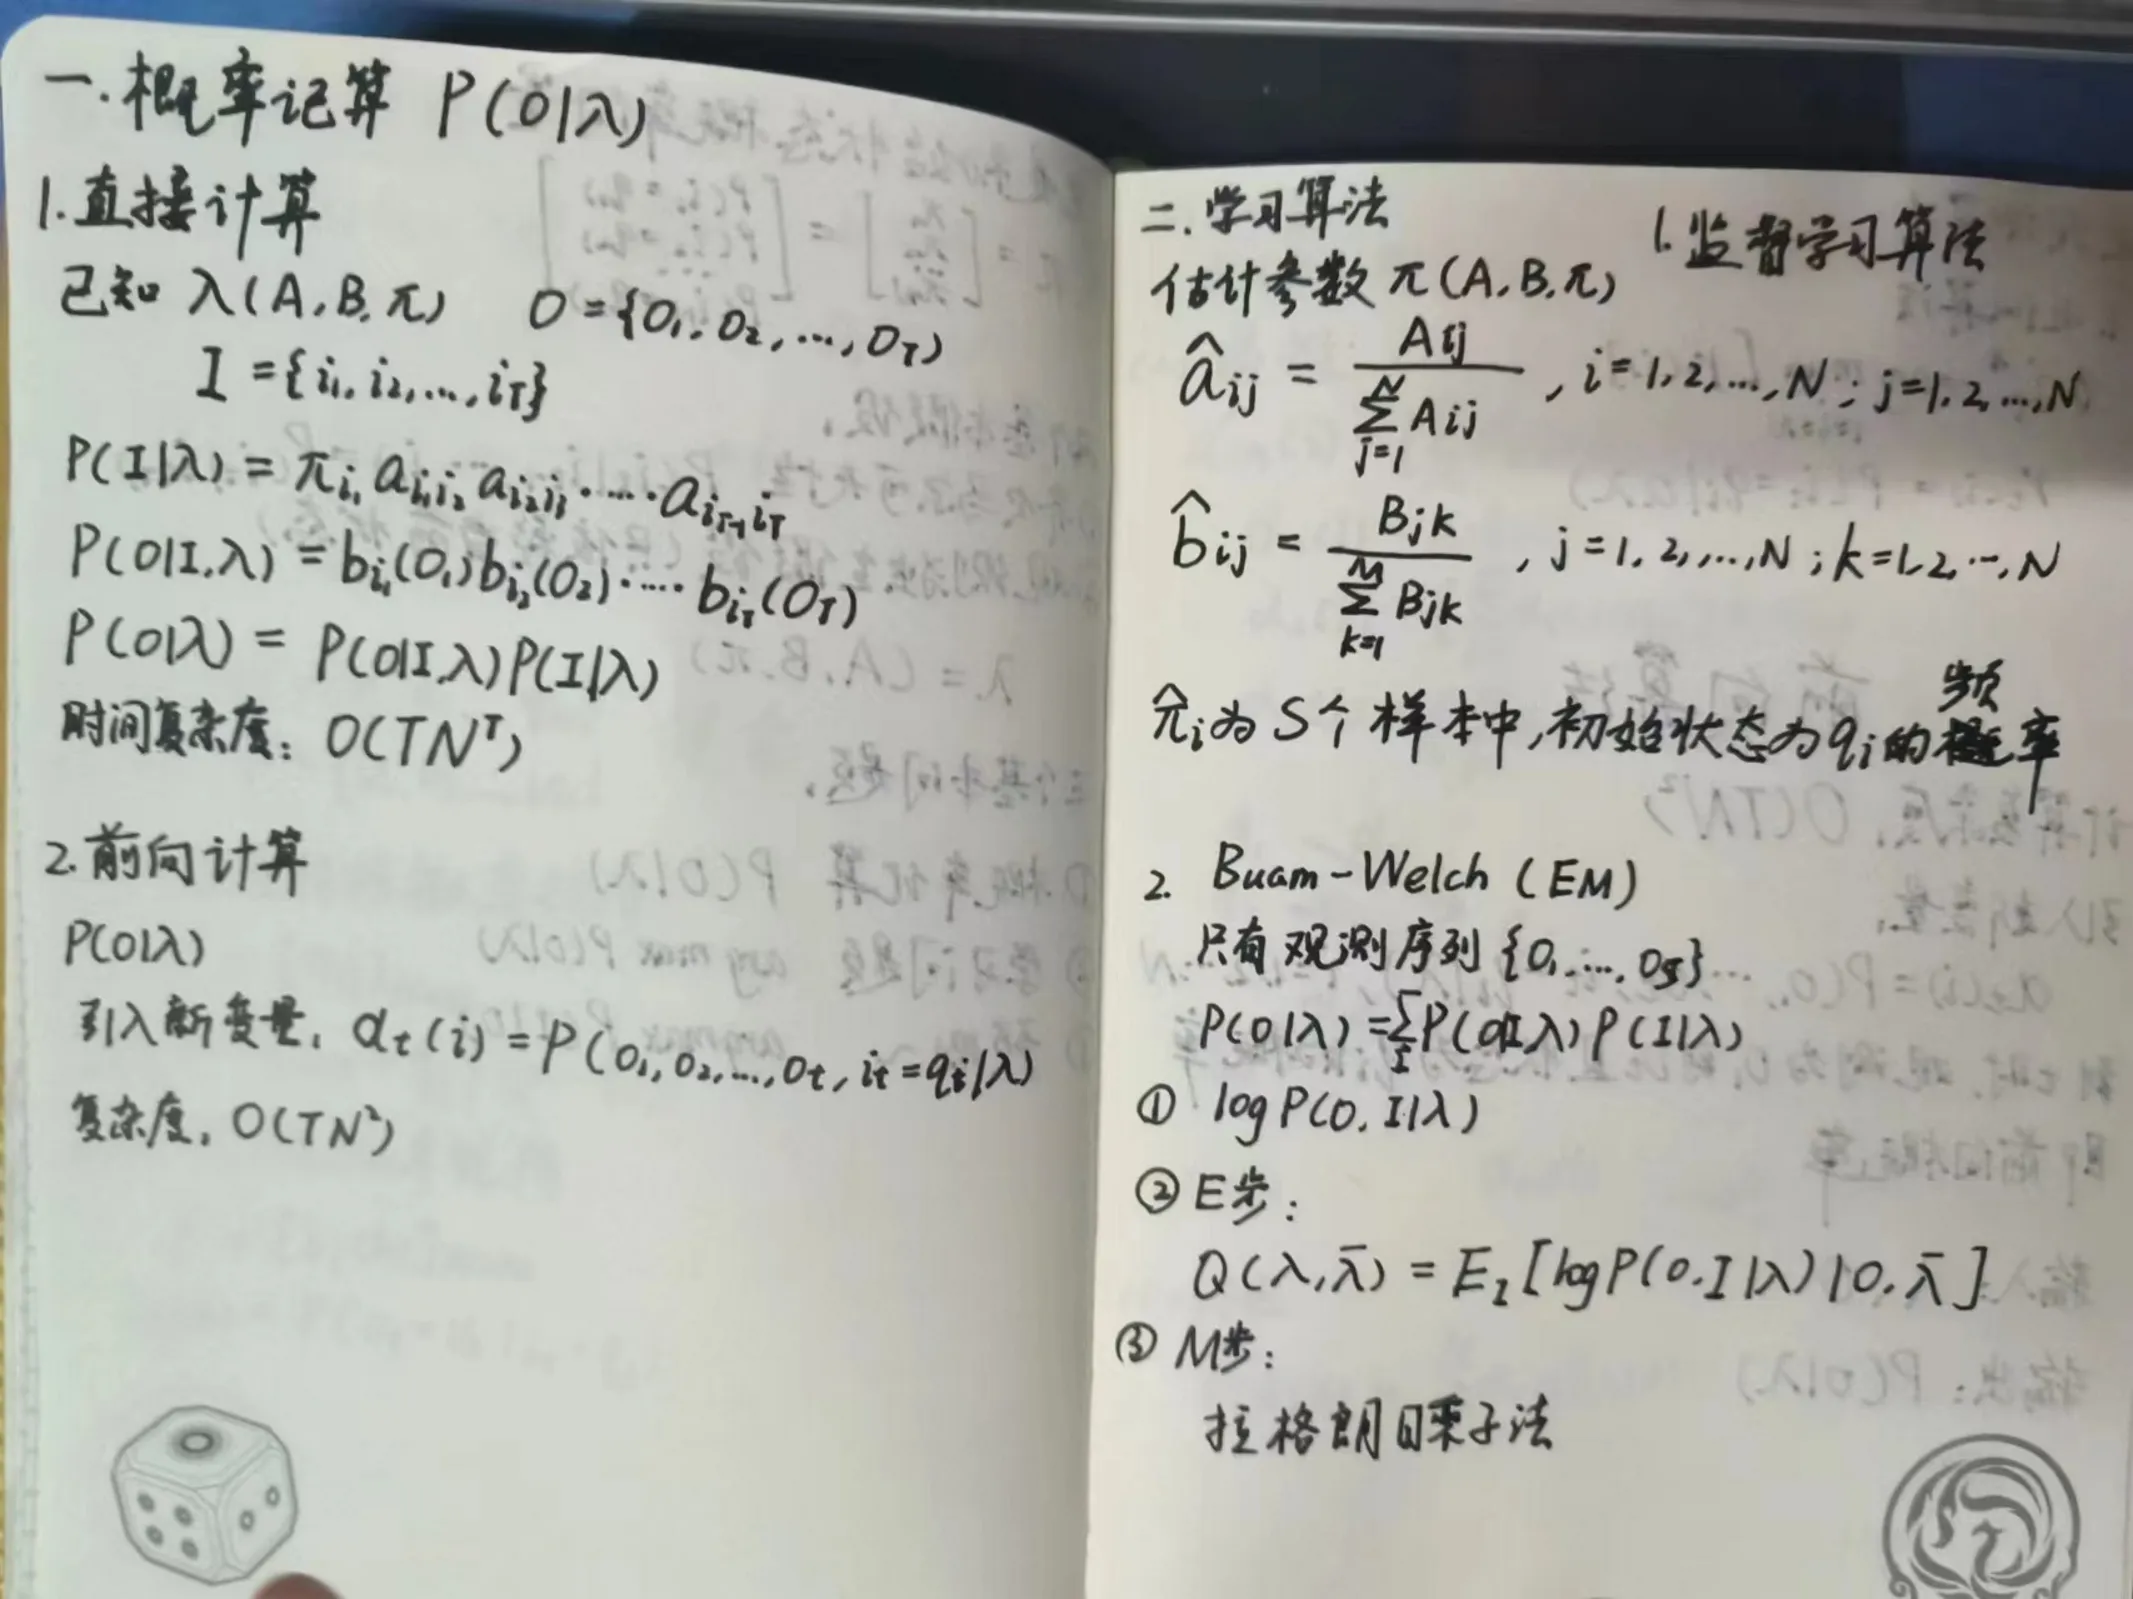 一.概率记算 P(O|λ)
1.直接计算
已知 λ(A,B,π) O={O₁,O₂,...,O_T)
I={i₁,i₂,...,i_T}
P(I|λ)=π_{i₁}a_{i₁i₂}a_{i₂i₃}·...·a_{i_{T-1}i_T}
P(O|I,λ)=b_{i₁}(O₁)b_{i₂}(O₂)·...·b_{i_T}(O_T)
P(O|λ)=P(O|I,λ)P(I|λ)
时间复杂度:O(TN^T)
2.前向计算
P(O|λ)
引入新变量,α_t(i)=P(O₁,O₂,...,O_t,i_t=q_i|λ)
复杂度,O(TN²)
二.学习算法
1.监督学习算法
估计参数π(A,B,π)
â_{ij}=A_{ij}/∑_{j=1}^{N}A_{ij},i=1,2,...,N;j=1,2,...,N
b̂_{ij}=B_{jk}/∑_{k=1}^{M}B_{jk},j=1,2,...,N;k=1,2,...,N
π̂_i为S个样本中,初始状态为q_i的频率
2. Buam-Welch(EM)
只有观测序列{O₁,...,O_S}
P(O|λ)=∑_I P(O|I,λ)P(I|λ)
① logP(O,I|λ)
② E步:
Q(λ,λ̄)=E_I[logP(O,I|λ)|O,λ̄]
③ M步:
拉格朗日乘子法